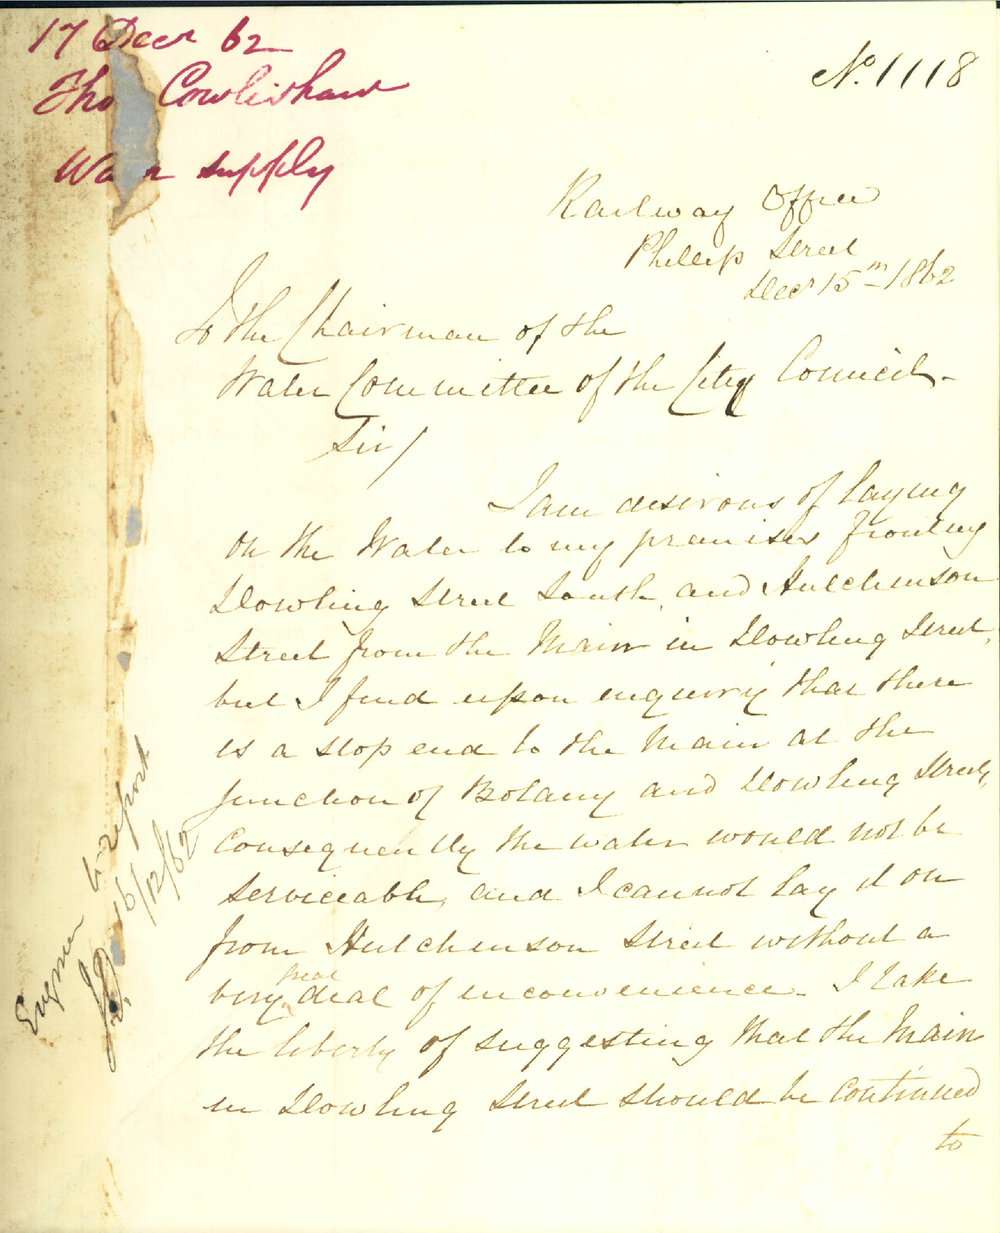 17 Decr 62
Tho Cowlishaw
Wa r supply
No. 1118
Railway Office
Phillip Street
Decr 15th 1862
To the Chairman of the
Water Committee of the City Council-
Sir/
I am desirous of laying
on the Water to my premises fronting
Dowling Street South, and Hutchenson
Street from the Main in Dowling Street,
but I find upon enquiry that there
is a stop end to the Main at the
junction of Botany and Dowling Streets,
Consequently the water would not be
serviceable, and I cannot lay it on
from Hutchenson Street without a
very great deal of inconvenience. I take
the liberty of suggesting that the Main
in Dowling Street should be Continued
to
Engineer to report
16/12/62